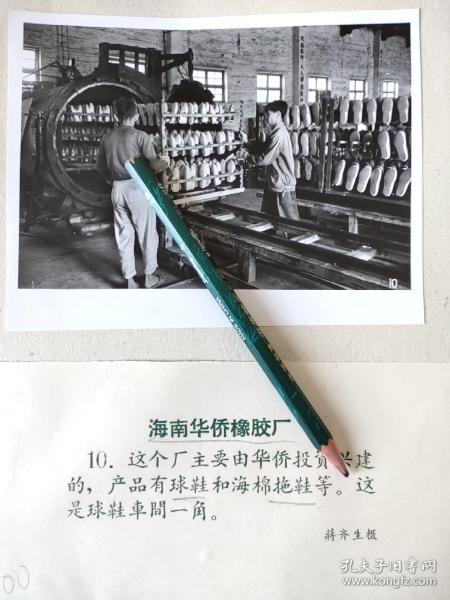 10
海南华侨橡胶厂
10. 这个厂主要由华侨投資兴建
的，产品有球鞋和海棉拖鞋等。这
是球鞋車間一角。
蔣齐生摄
00
孔夫子旧书网
www.kongfz.com